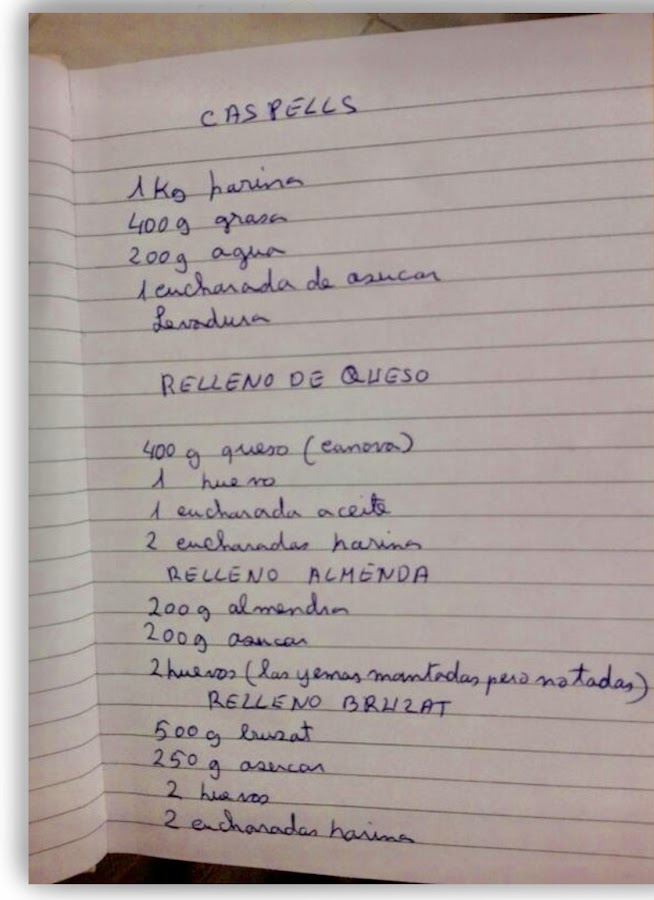 CASPELLS
1 Kg harina
400 g grasa
200 g agua
1 cucharada de asucar
Levadura
RELLENO DE QUESO
400 g queso (canova)
1 huevo
1 cucharada aceite
2 cucharadas harina
RELLENO ALMENDA
200 g almendra
200 g asucar
2 huevos (las yemas montadas pero no todas)
RELLENO BRUZAT
500 g bruzat
250 g asucar
2 huevos
2 cucharadas harina